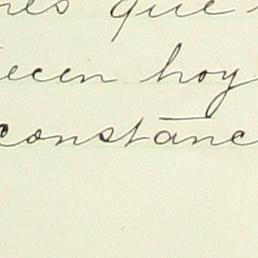 nes que
ecen hoy
constanc